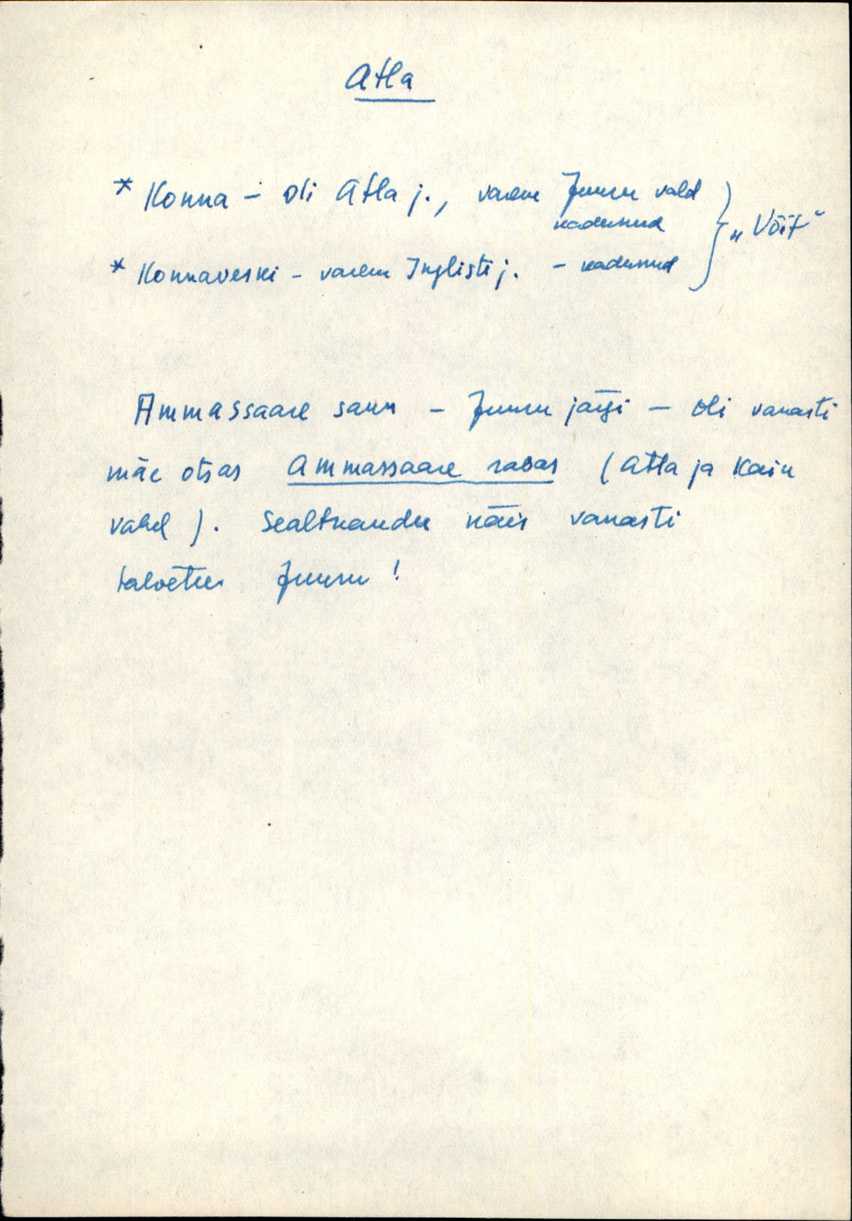 Atla
* Konna – oli Atla j., varem Juuru vald
kadunud
* Konnaveski – varem Inglisti j. – kadunud } „Võit"
Ammassaare saun – Juuru järgi – oli vanasti
mäe otsas Ammassaare rabas (Atla ja Kaiu
vahel). Sealtkaudu käis vanasti
talvetee Juuru!